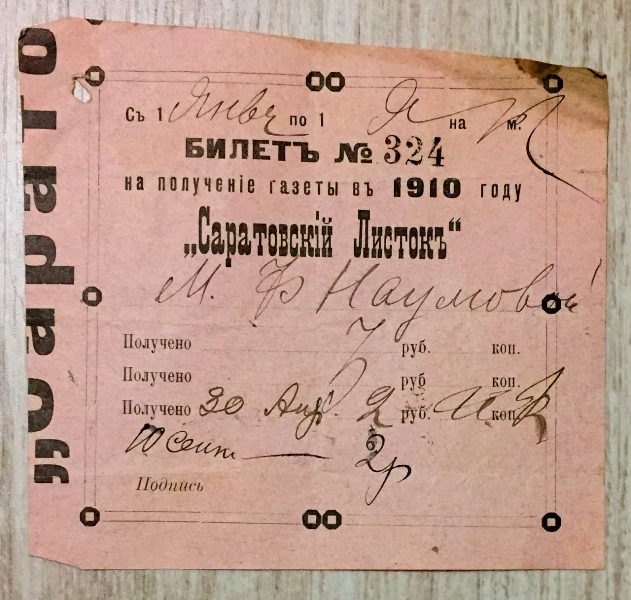 „Сарато
Съ 1 Янв по 1 Я на м.
БИЛЕТЪ № 324
на полученіе газеты въ 1910 году
„Саратовскій Листокъ“
М. Ф Наумовой
Получено 7 руб. коп.
Получено руб коп.
Получено 30 Апр. 2 руб. коп.
10 сент — 2р
Подпись